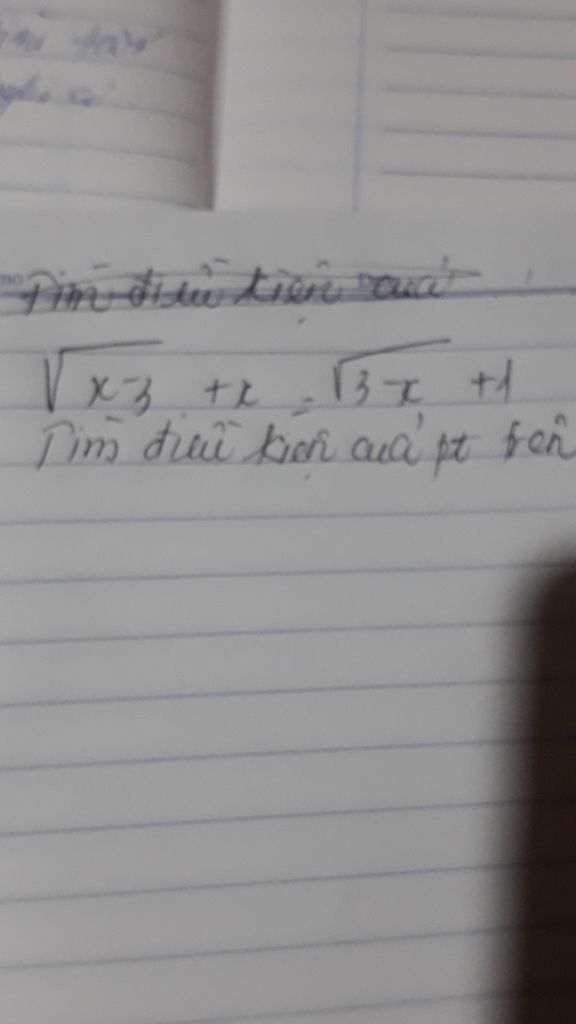 Tìm điều kiện của
√x-3 + x = √3-x + 1
Tìm điều kiện của pt trên